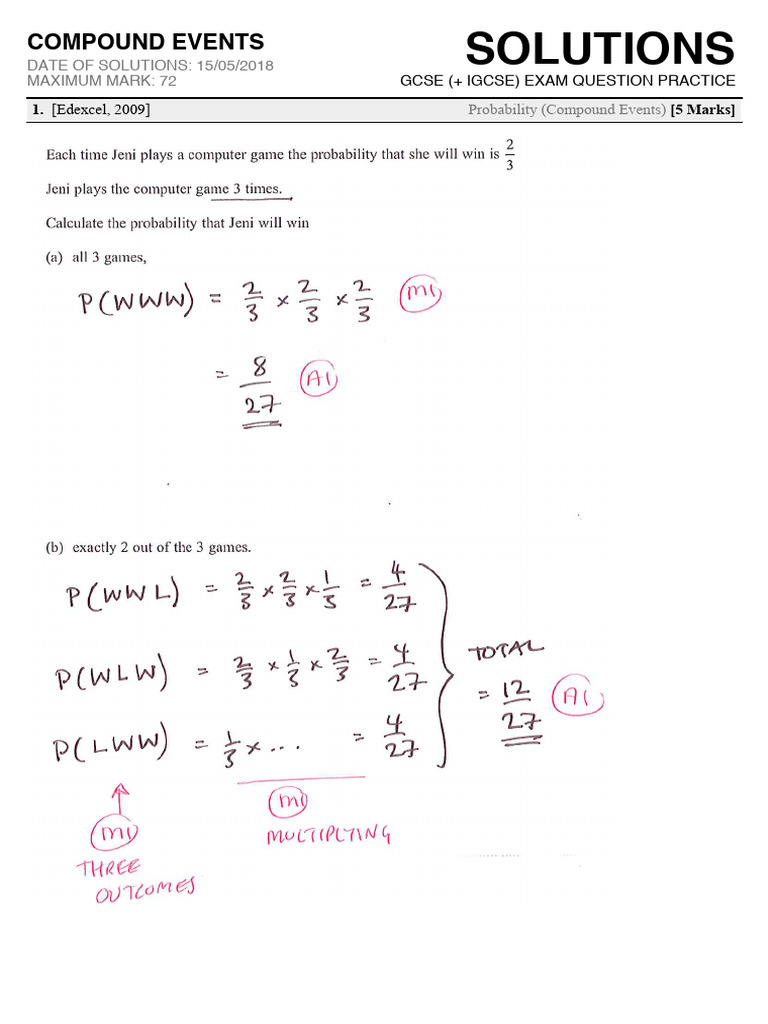 COMPOUND EVENTS
SOLUTIONS
DATE OF SOLUTIONS: 15/05/2018
MAXIMUM MARK: 72
GCSE (+ IGCSE) EXAM QUESTION PRACTICE
1. [Edexcel, 2009] Probability (Compound Events) [5 Marks]
Each time Jeni plays a computer game the probability that she will win is 2/3
Jeni plays the computer game 3 times.
Calculate the probability that Jeni will win
(a) all 3 games,
P(WWW) = 2/3 × 2/3 × 2/3 M1
= 8/27 A1
(b) exactly 2 out of the 3 games.
P(WWL) = 2/3 × 2/3 × 1/3 = 4/27
P(WLW) = 2/3 × 1/3 × 2/3 = 4/27
TOTAL
= 12/27 A1
P(LWW) = 1/3 × ... = 4/27
M1
THREE
OUTCOMES
M1
MULTIPLYING